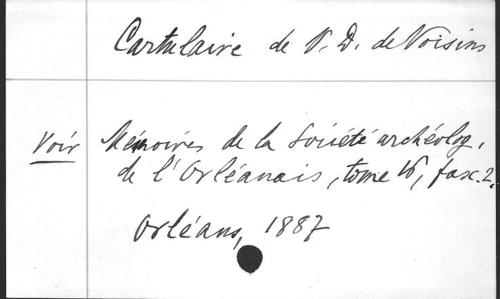 Cartulaire de N. D. de Voisins
Voir Mémoires de la Société archéolog.
de l'Orléanais, tome 16, fasc. 2.
Orléans, 1887